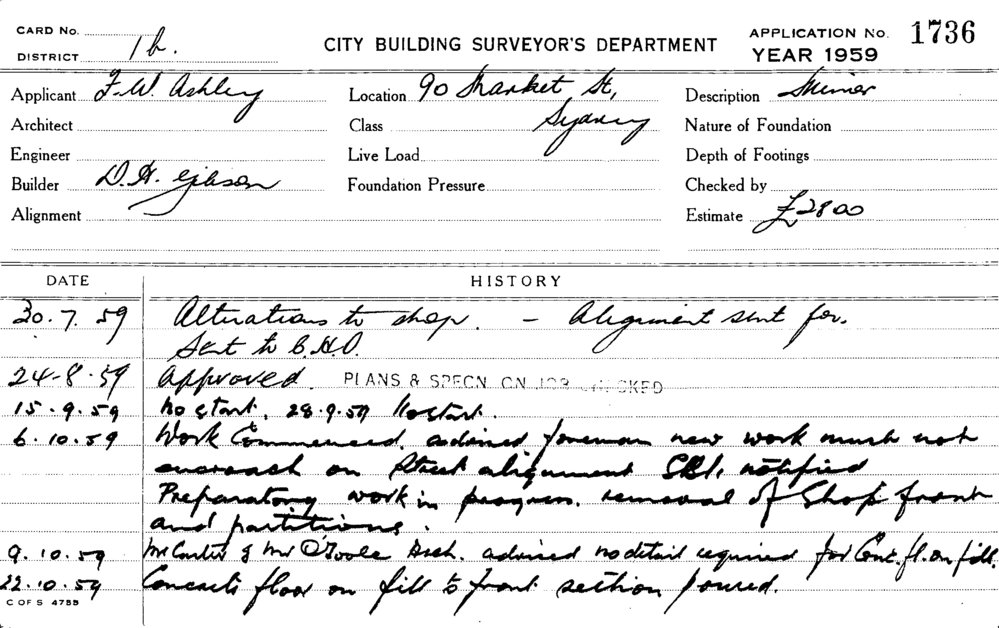 CARD No.
DISTRICT 1h.
CITY BUILDING SURVEYOR'S DEPARTMENT
APPLICATION No. 1736
YEAR 1959
Applicant F.W. Ashley
Location 90 Market St,
Sydney
Description Minor
Architect
Class
Nature of Foundation
Engineer
Live Load
Depth of Footings
Builder D.H. Gibson
Foundation Pressure
Checked by
Alignment
Estimate £2800
DATE HISTORY
30.7.59 Alterations to shop. — Alignment sent for.
Sent to C.H.O.
24-8-59 Approved. PLANS & SPECN ON JOB CHECKED
15.9.59 No start, 28.9.59 No start.
6.10.59 Work Commenced, advised foreman new work must not
encroach on Street alignment notified
Preparatory work in progress. removal of Shop front
and partitions.
9.10.59 Mr O'Toole Arch. advised no detail required for Conc. fl. on fill.
22.10.59 Concrete floor on fill to front section poured.
C OF S 4755